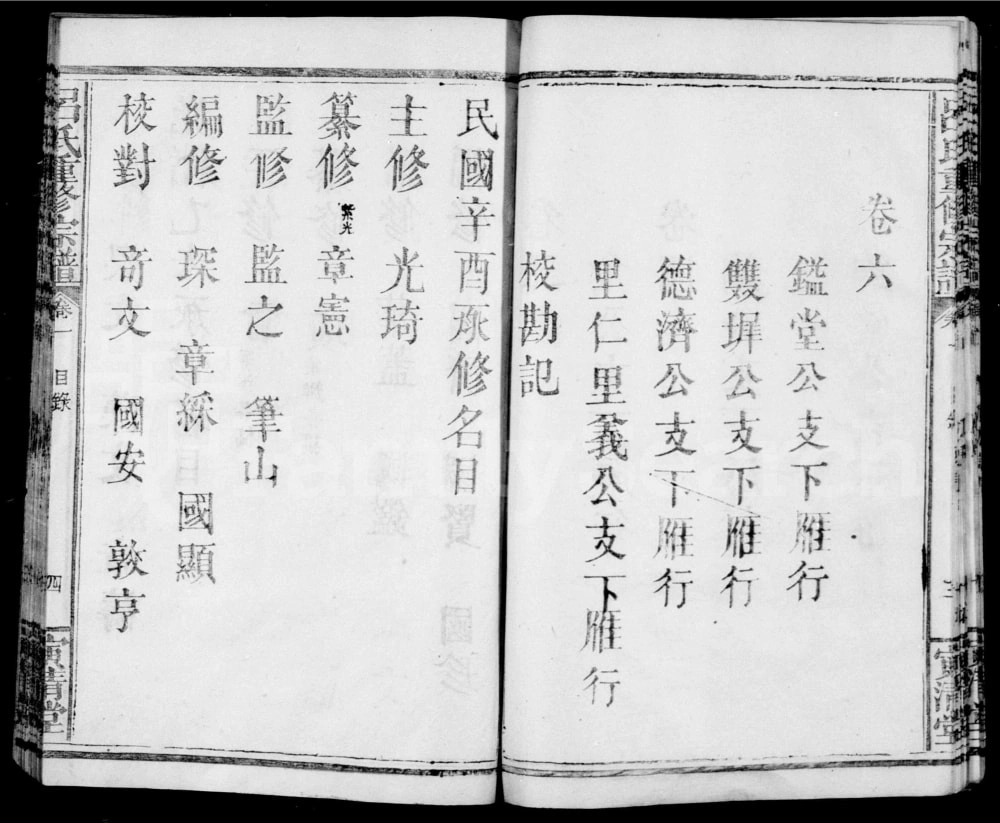 卷六
鑑堂公支下雁行
雙墀公支下雁行
德濟公支下雁行
里仁里義公支下雁行
校勘記
民國辛酉承修名目
主修 光琦
纂修 紫光 章憲
監修 監之 筆山
編修 琛 章綵 國顯
校對 奇文 國安 敦亨
呂氏重修宗譜 卷一 目錄 四 寅清堂